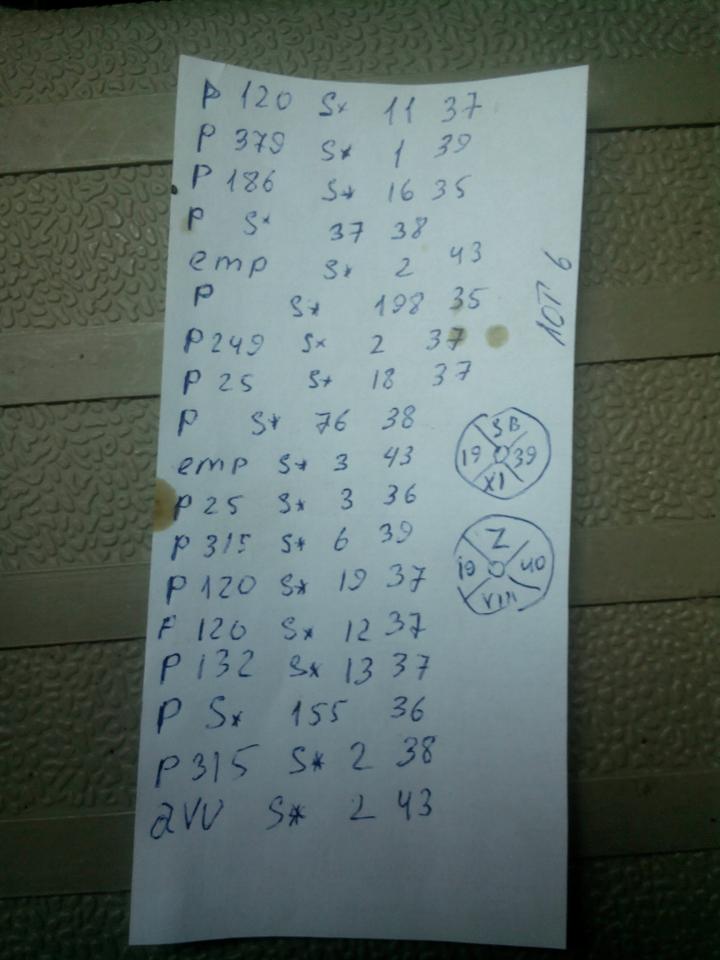 P 120 S* 11 37
P 379 S* 1 39
P 186 S* 16 35
P S* 37 38
emp S* 2 43
P S* 198 35
P 249 S* 2 37
P 25 S* 18 37
P S* 76 38
emp S* 3 43
P 25 S* 3 36
P 315 S* 6 39
P 120 S* 19 37
P 120 S* 12 37
P 132 S* 13 37
P S* 155 36
P 315 S* 2 38
avu S* 2 43
ЛОТ 6
SB
19 39
XI
Z
19 40
VIII